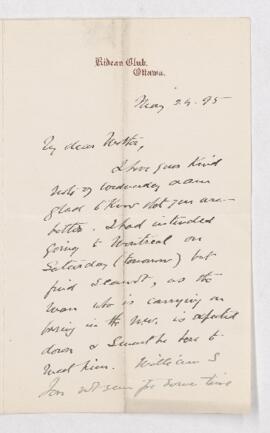 Rideau Club,
Ottawa.
May 24. 95
My dear Mother,
I have your kind
note of wednesday & am
glad to know that you are
better. I had intended
going to Montreal on
Saturday (tomorrow) but
find I cannot, as the
man who is carrying on
boring in the N.W. is expected
down & I must be here to
meet him. William &
I have not seen for some time